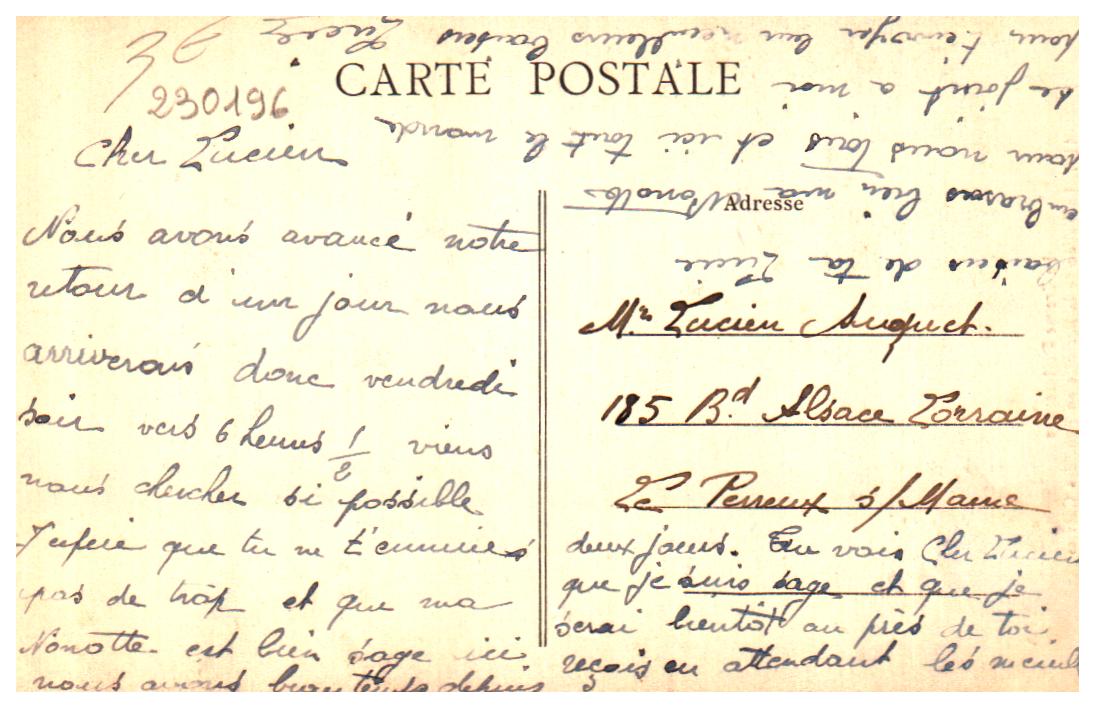 CARTE POSTALE
230196
Cher Lucien
Nous avons avancé notre
retour d'un jour nous
arriverons donc vendredi
soir vers 6 heures 1/2 viens
nous chercher si possible
J'espère que tu ne t'ennuies
pas de trop et que ma
Nonotte est bien sage ici
nous avons beau temps depuis
Adresse
Mr Lucien Auquet.
185 Bd Alsace Lorraine
Le Perreux s/Marne
deux jours. Tu vois Cher Lucien
que je suis sage et que je
serai bientôt au près de toi.
reçois en attendant les meill
baisers de ta Lucie
embrasses bien ma Nonotte
pour nous tous et ici tout le monde
se joint a moi
pour t'envoyer leur meilleurs baisers Lucie